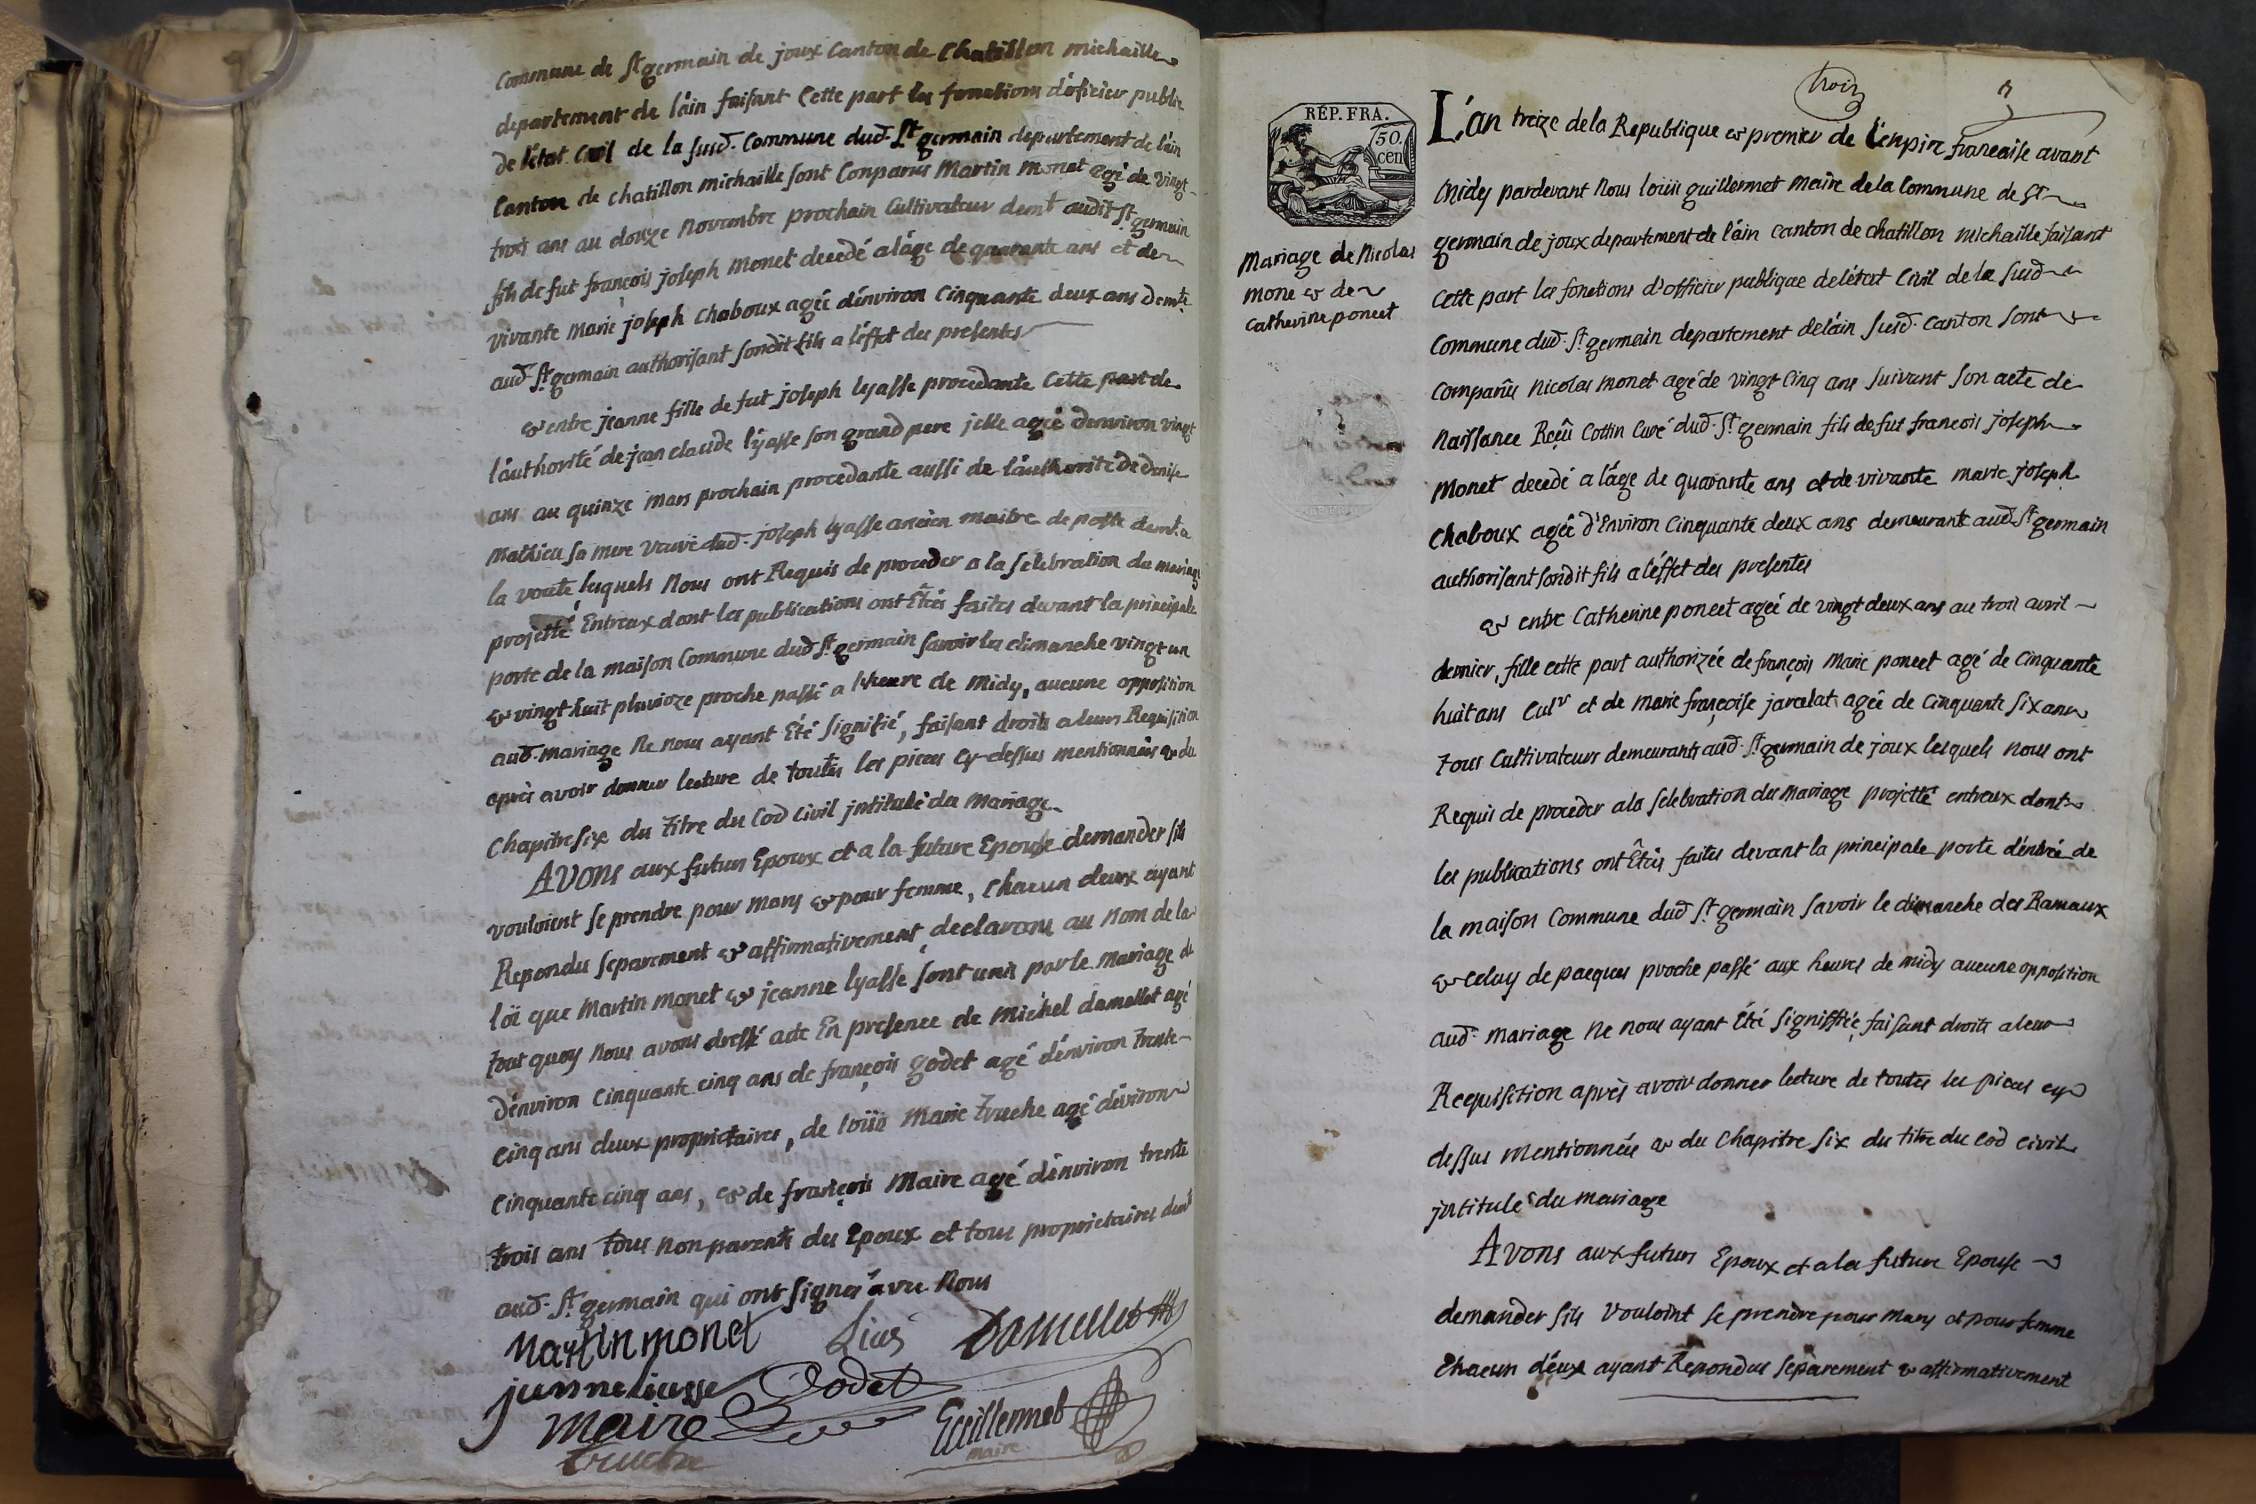 Commune de St germain de joux Canton de Chatillon michaille
departement de l'ain faisant Cette part les fonctions d'oficier public
de l'état Civil de la susd. Commune dud. St germain departement de l'ain
Canton de chatillon michaille sont Conparus Martin monet agé de vingt-
trois ans au douze Novembre prochain Cultivateur demt audit St germain
fils de fut françois joseph monet decedé a láge de quarante ans et de
vivante Marie joseph Chaboux agée d'environ Cinquante deux ans demte
aud St germain authorisant sondit fils a l'éffet des presentes
& entre jeanne fille de fut joseph lyasse procedante Cette part de
l'authorité de jean claude lyasse son grand pere jcelle agée d'environ vingt
ans au quinze mars prochain procedante aussi de l'authorité de denise
Mathieu sa mere veuve dud. joseph lyasse ancien maitre de poste demt a
la voute, lesquels Nous ont Requis de proceder a la selebration du mariage
projetté Entreux dont les publications ont Étés faites devant la principale
porte de la maison Commune dud St germain savoir les dimanche vingt un
& vingt-huit pluvioze proche passé a l'heure de midy, aucune opposition
aud. mariage Ne nous ayant Été signifié, faisant droits a leurs Requisition
après avoir donner lecture de toutes les pieces Cy-dessus mentionnées & du
Chapitre six du titre du Cod Civil jntitulé du Mariage
Avons aux futurs Epoux et a la future Epouse demander sils
vouloient se prendre pour mary & pour femme, Chacun deux ayant
Repondu separement & affirmativement, declarons au Nom de la
loï que Martin monet & jeanne lyasse sont unis par le mariage de
tout quoy Nous avons dressé acte En presence de Michel damellet agé
d'environ Cinquante cinq ans de françois godet agé d'environ trente-
cinq ans deux proprietaires, de loüis Marie truche agé d'éviron
cinquante cinq ans, & de françois Maire agé d'énviron trente
trois ans tous non parents des Epoux et tous proprietaires demt
aud. St germain qui ont signés avec Nous
Martin monet Lias Damellet
junne liasse Godet
maire Guillermet
truche maire
trois
RÉP. FRA.
50. cen
Mariage de Nicolas
mone & de
Catherine poncet
L'an treize de la Republique & premier de L'enpire francaise avant
Midy pardevant Nous loüis guillermet maire de la Commune de St
germain de joux departement de l'áin canton de chatillon michaille faisant
Cette part les fonctions d'officier publique de létat Civil de la susd
Commune dud. St germain departement de l'áin susd. Canton sont
Comparûs Nicolas monet agé de vingt Cinq ans suivant son acte de
Naissance Reçû Cottin Curé dud. St germain fils de fut francois joseph
Monet decedé a láge de quarante ans et de vivante marie joseph
Chaboux agée d'Environ Cinquante deux ans demeurante aud. St germain
authorisant sondit fils a l'éffet des presentes
& entre Catherine poncet agée de vingt deux ans au trois avril
dernier, fille cette part authorizée de françois Marie poncet agé de Cinquante
huit ans Culr et de marie françoise jarcelat agée de cinquante six ans
tous Cultivateurs demeurants aud. St germain de joux lesquels Nous ont
Requis de proceder a la selebration du mariage projetté entreux dont
les publications ont Étés faites devant la principale porte d'éntrée de
la maison Commune dud St germain savoir le dimanche des Rameaux
& Celuy de pacques proche passé aux heures de midy aucune opposition
aud. mariage Ne nous ayant Été signiffiée, faisant droits a leur
Requisition après avoir donner lecture de toutes les pieces cy
dessus Mentionnées & du Chapitre Six du titre du Cod Civil
jntitulé du mariage
Avons aux futurs Epoux et a la future Epouse
demander sils Vouloint se prendre pour mary et pour femme
Chacun d'éux ayant Repondus separement & affirmativement